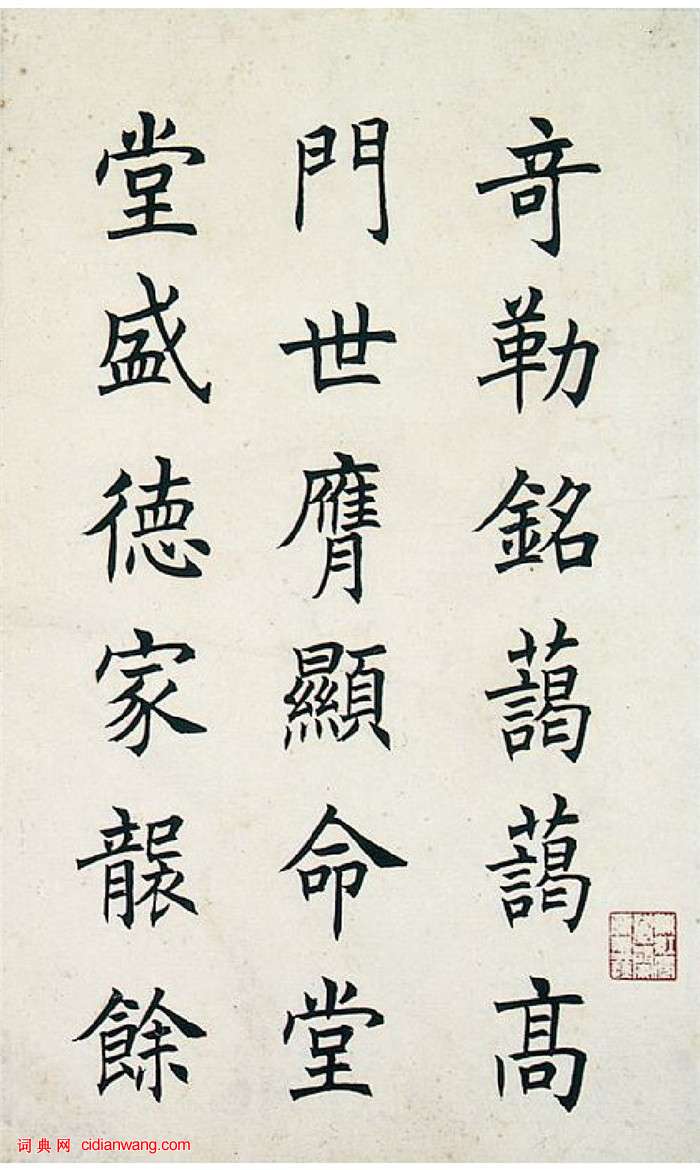 竒勒銘藹藹髙
門世膺顯命堂
堂盛徳家襲餘
词典网 cidianwang.com